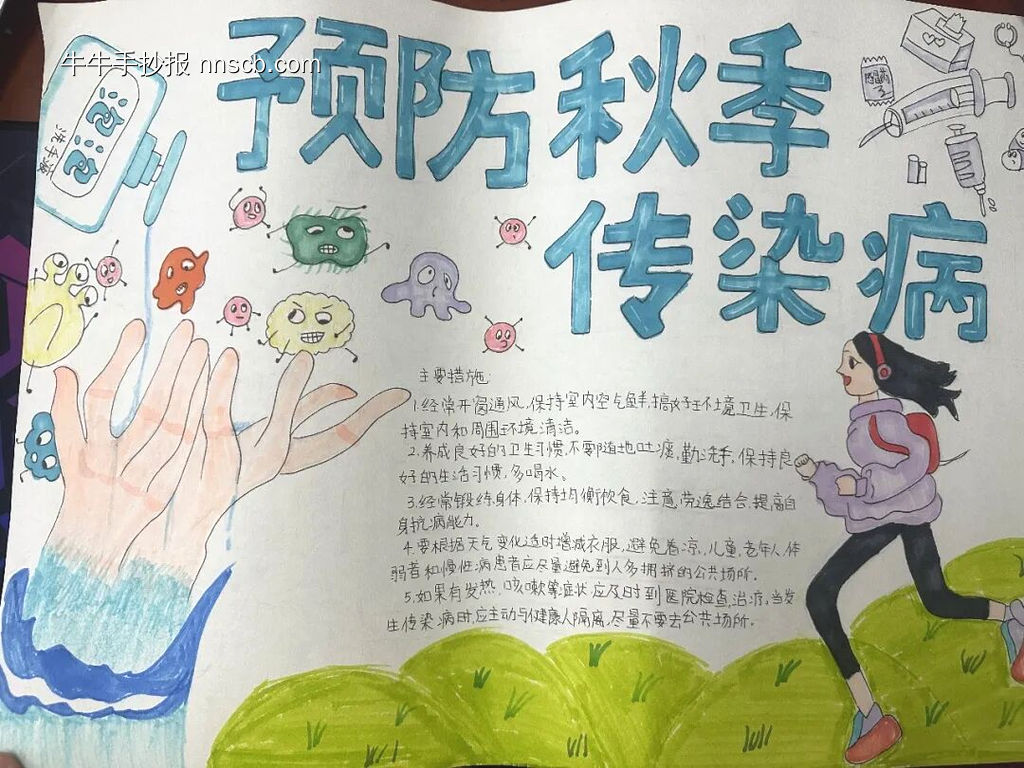 牛牛手抄报 nnscb.com
预防秋季
传染病
洗手液
主要措施:
1.经常开窗通风,保持室内空气新鲜,搞好环境卫生,保
持室内和周围环境清洁。
2.养成良好的卫生习惯,不要随地吐痰,勤洗手,保持良
好的生活习惯,多喝水。
3.经常锻练身体,保持均衡饮食,注意劳逸结合,提高自
身抗病能力。
4.要根据天气变化适时增减衣服,避免着凉,儿童,老年人,体
弱者和慢性病患者应尽量避免到人多拥挤的公共场所.
5.如果有发热,咳嗽等症状,应及时到医院检查,治疗,当发
生传染病时,应主动与健康人隔离,尽量不要去公共场所.